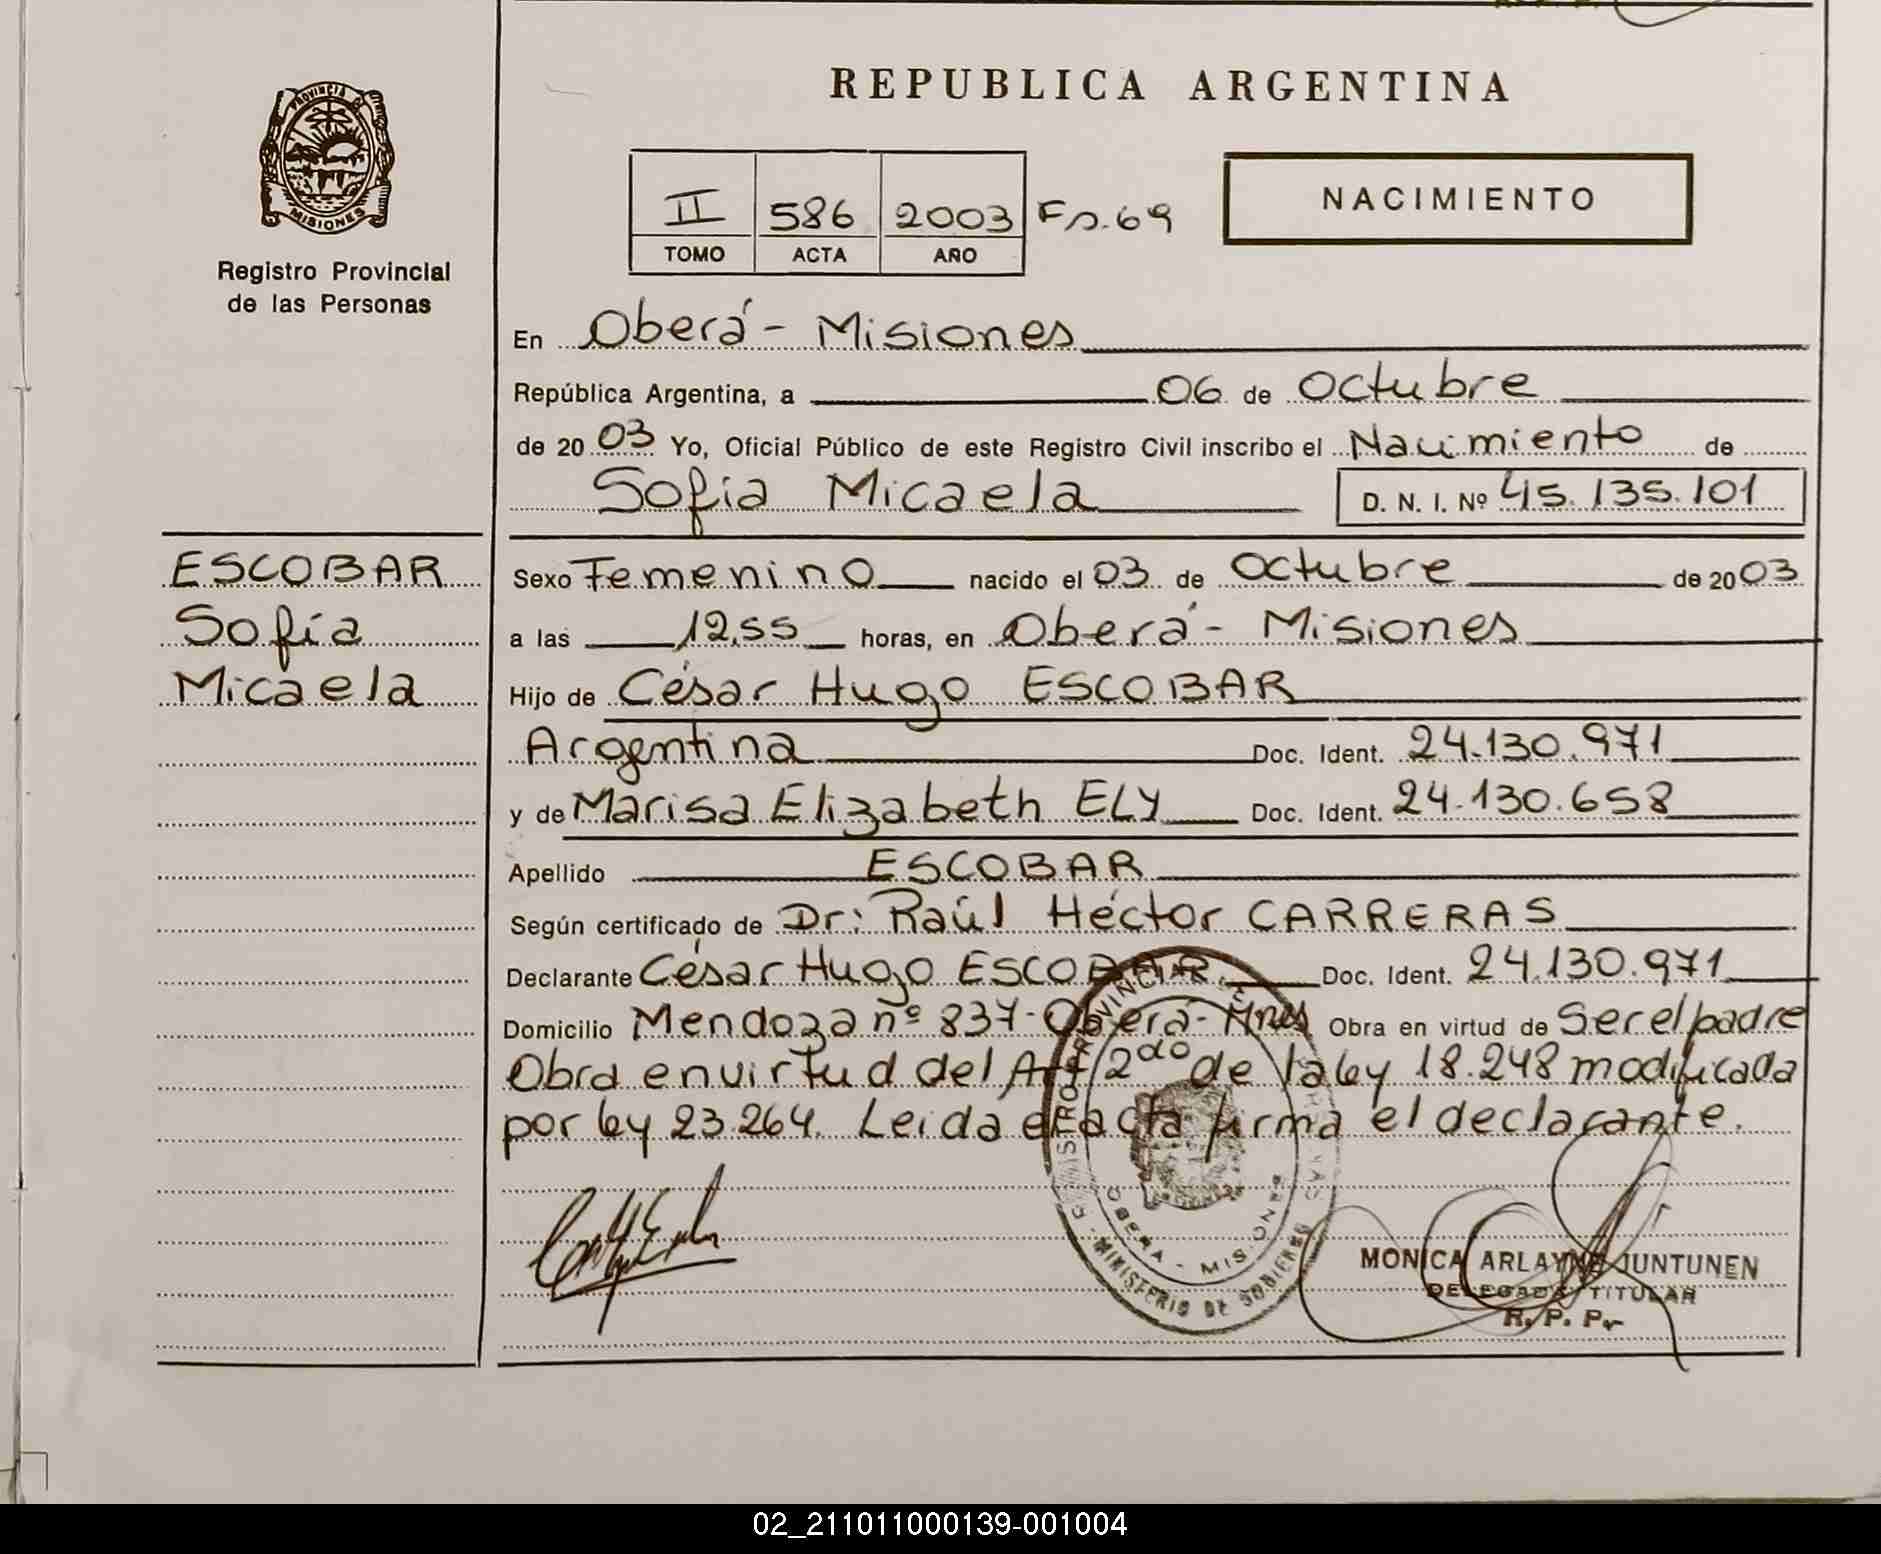 REPUBLICA ARGENTINA
PROVINCIA D
MISIONES
Registro Provincial
de las Personas
II 586 2003 Fs. 69
TOMO ACTA AÑO
NACIMIENTO
En Oberá - Misiones
República Argentina, a 06 de Octubre
de 2003 Yo, Oficial Público de este Registro Civil inscribo el Nacimiento de
Sofía Micaela D. N. I. Nº 45.135.101
ESCOBAR
Sofía
Micaela
Sexo Femenino nacido el 03 de Octubre de 2003
a las 12,55 horas, en Oberá - Misiones
Hijo de César Hugo ESCOBAR
Argentina Doc. Ident. 24.130.971
y de Marisa Elizabeth ELY Doc. Ident. 24.130.658
Apellido ESCOBAR
Según certificado de Dr: Raúl Héctor CARRERAS
Declarante César Hugo ESCOBAR Doc. Ident. 24.130.971
Domicilio Mendoza nº 837- Oberá - Mnes Obra en virtud de Ser el padre
Obra en virtud del Art 2do de la ley 18.248 modificada
por ley 23.264. Leida el acta firma el declarante.
OBERA - MISIONES
MINISTERIO DE GOBIERNO
MONICA ARLAYNE JUNTUNEN
DELEGADA TITULAR
R. P. P.
02_211011000139-001004